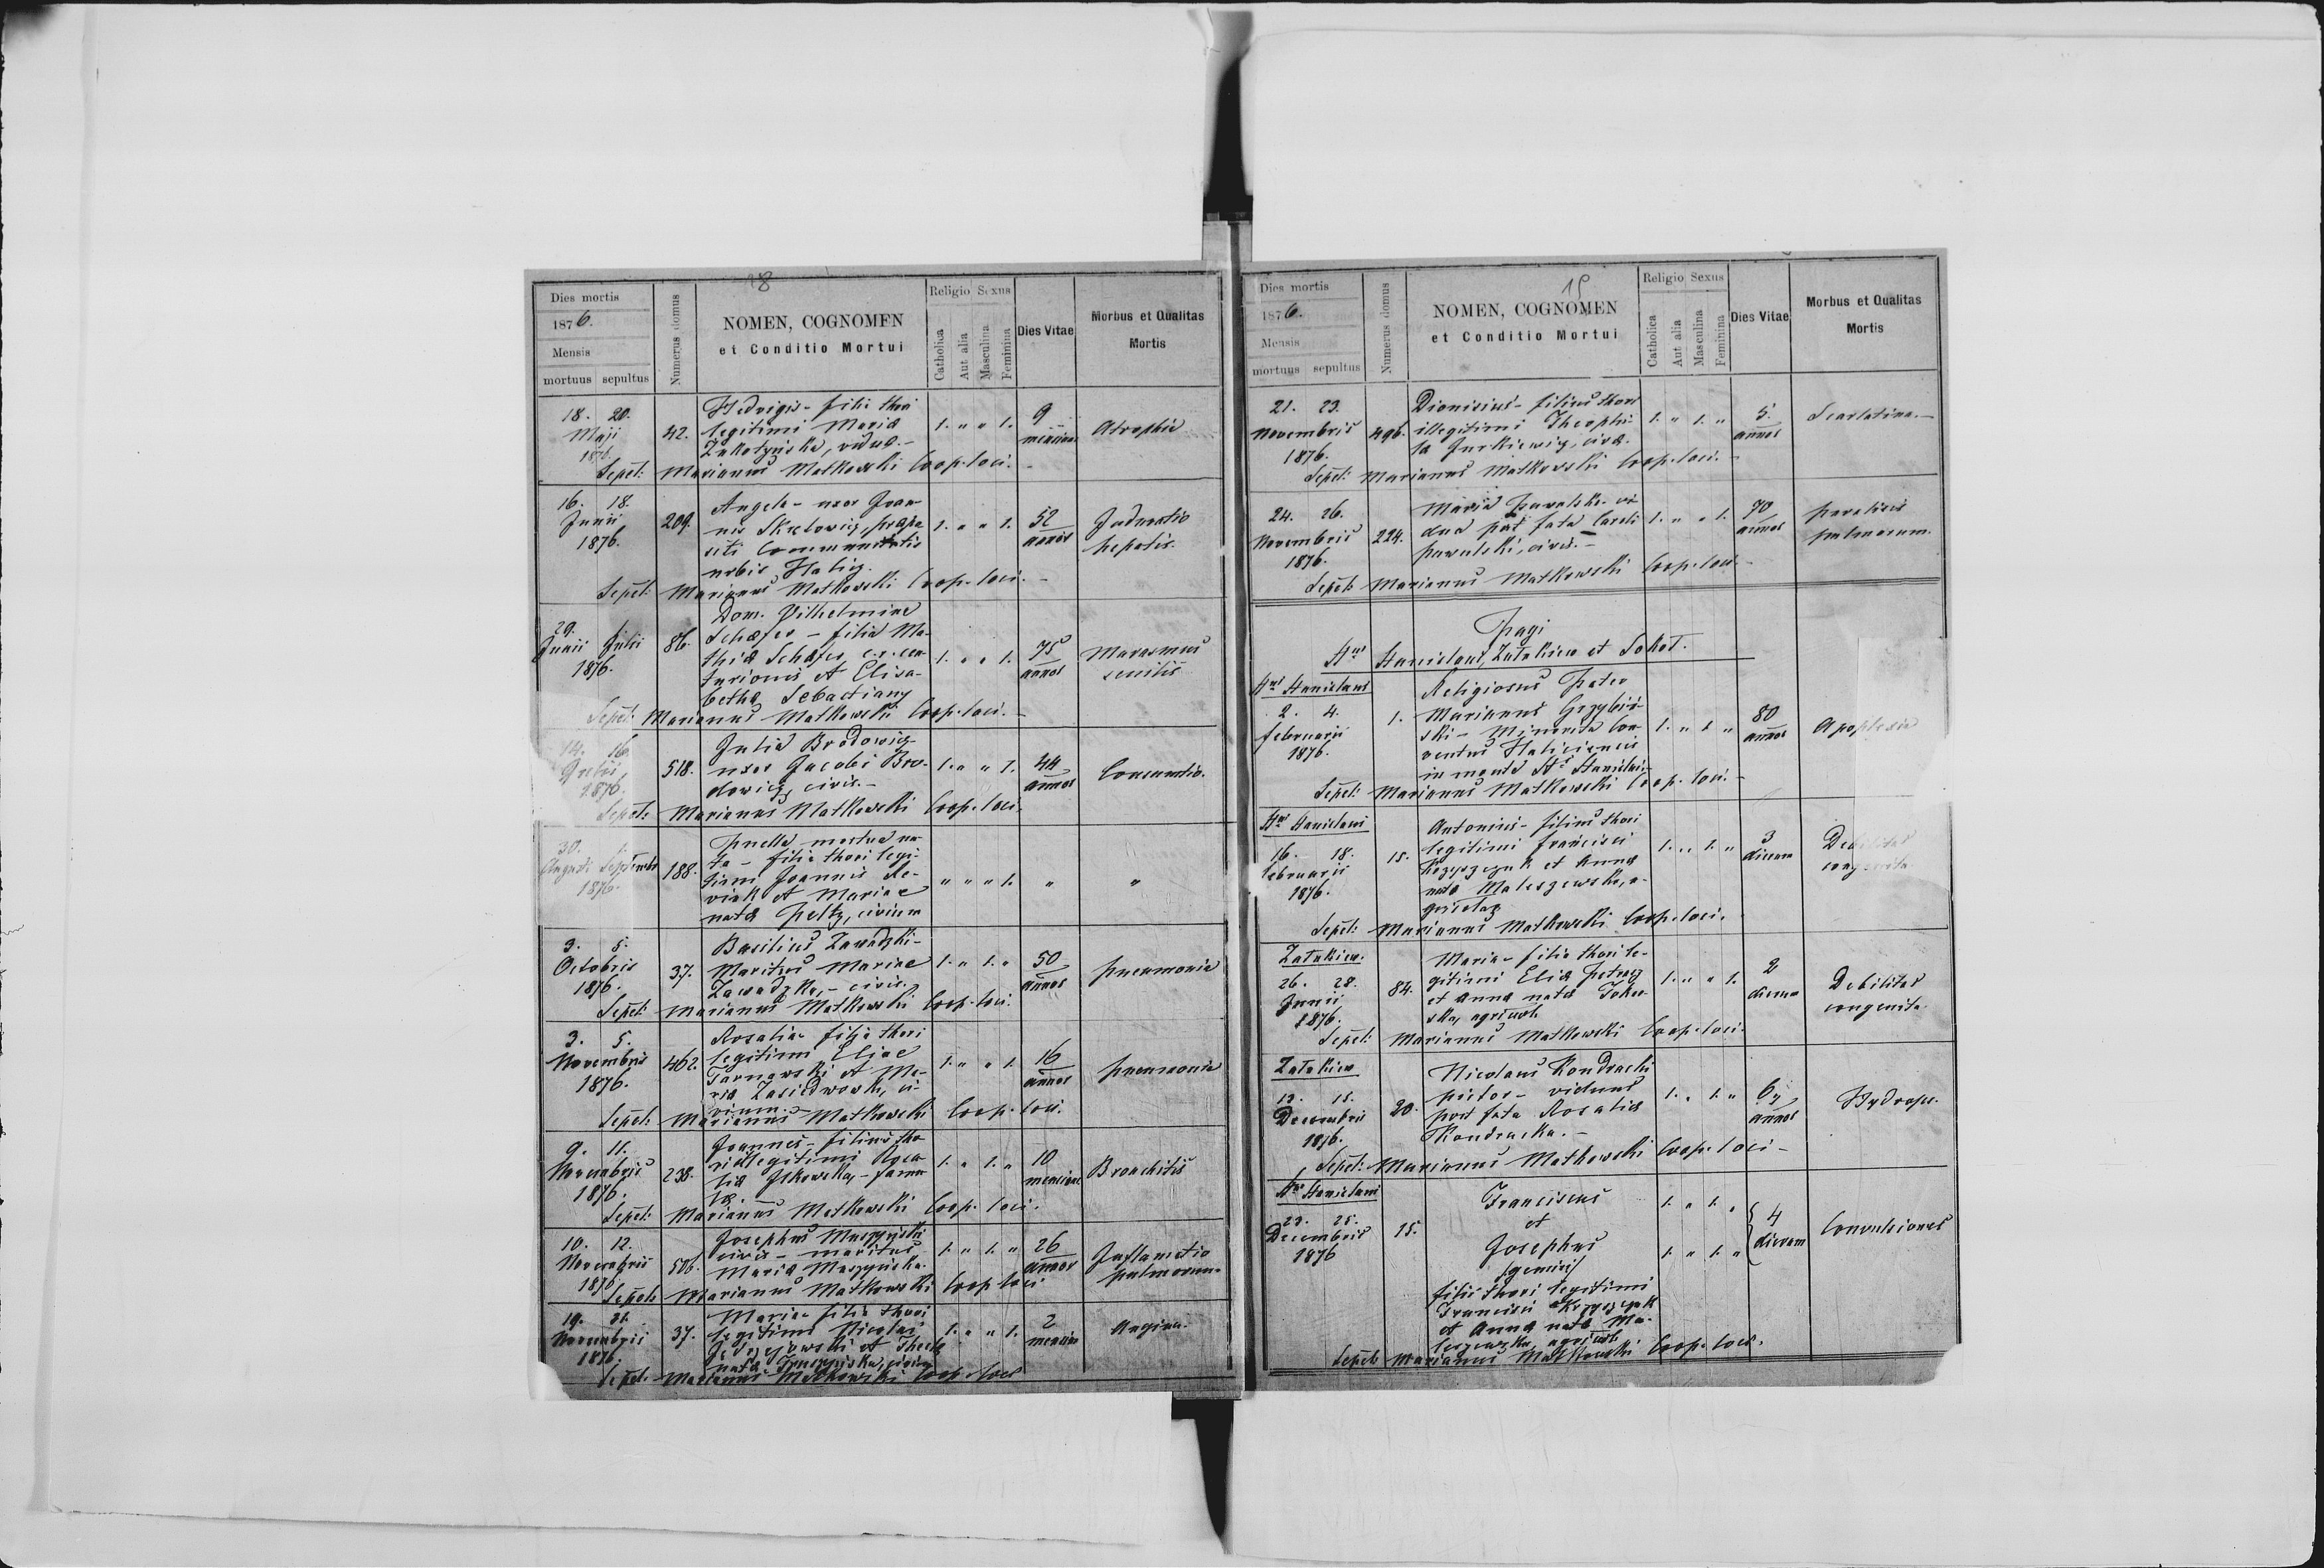 18
Dies mortis
1876.
Mensis
mortuus sepultus
Numerus domus
NOMEN, COGNOMEN
et Conditio Mortui
Religio Sexus
Catholica
Aut alia
Masculina
Feminina
Dies Vitae
Morbus et Qualitas
Mortis
18. 20.
Maji
1876.
42.
Hedvigis - filia thori
legitimi Maria
vidua. -
1. " " 1.
9
mensium
Atrophia
Sepel: Marianus Matkowski Coop. loci. -
16. 18.
Junii
1876.
209.
Angela - uxor Joan-
nis
siti Communitatis
urbis Halicz.
1. " " 1.
52
annos
Induratio
hepatis.
Sepel: Marianus Matkowski Coop. loci. -
29.
Junii Julii
1876.
86.
Dom. Wilhelmina
Schafer - filia Ma-
thia Schafer c. r. cen-
turionis et Elisa-
betha Sebastiany
1. " " 1.
75
annos
Marasmus
senilis
Sepel: Marianus Matkowski Coop. loci. -
14. 16.
Julii
1876.
518.
Julia Brodowicz
uxor Jacobi Bro-
dowicz, civis. -
1. " " 1.
44
annos
Consumtio.
Sepel: Marianus Matkowski Coop. loci.
30. 1.
Augusti Septembr
1876.
188.
Puella mortua na-
ta - filia thori legi-
timi Joannis Re-
viak et Mariae
nata Peltz, civium
" " " 1.
"
"
3. 5.
Octobris
1876.
37.
Basilius Zawadzki -
Maritus Mariae
Zawadzka, - civis.
1. " 1. "
50
annos
pneumonia
Sepel: Marianus Matkowski Coop. loci.
3. 5.
Novembris
1876.
462.
Rosalia filia thori
legitimi Eliae
Tarnawski et Ma-
ria ci-
vium. -
1. " " 1.
16
annos
pneumonia
Sepel: Marianus Matkowski Coop. loci.
9. 11.
Novembris
1876.
238.
Joannes - filius tho-
ri illegitimi Rosa-
lia famu-
la. -
1. " 1. "
10
mensium
Bronchitis
Sepel: Marianus Matkowski Coop. loci.
10. 12.
Novembris
1876
506.
Josephus Muszyński
civis - maritus
Maria Muszyńska.
1. " 1. "
26
annos
Inflamatio
pulmorum.
Sepel: Marianus Matkowski Coop. loci
19. 21.
Novembris
1876.
37.
Maria filia thori
legitimi Nicolai
et Thecla
nata civium
1. " " 1.
2
mensium
Angina.
Sepel: Marianus Matkowski Coop. loci
19
Dies mortis
1876.
Mensis
mortuus sepultus
Numerus domus
NOMEN, COGNOMEN
et Conditio Mortui
Religio Sexus
Catholica
Aut alia
Masculina
Feminina
Dies Vitae
Morbus et Qualitas
Mortis
21. 23.
Novembris
1876.
496.
Dionisius - filius thori
illegitimi Theophi-
la Jurkiewicz, civa.
1. " 1. "
5.
annos
Scarlatina. -
Sepel: Marianus Matkowski Coop. loci. -
24. 26.
Novembris
1876.
224.
Maria vi-
dua post fata Caroli
civis. -
1. " " 1.
70
annos
paralisis
pulmorum.
Sepel: Marianus Matkowski Coop. loci. -
Pagi
Stus Stanislaus, Załukiew et Sokoł.
Stus Stanislaus
2. 4.
Februarii
1876.
1.
Religiosus Pater
Marianus Grzybiń-
ski - Minorita Con-
ventus Haliciensis
in monte Sti Stanislai. -
1. " 1. "
80
annos
Apoplexia
Sepel: Marianus Matkowski Coop. loci. -
Stus Stanislaus
16. 18.
Februarii
1876.
15.
Antonius - filius thori
legitimi Francisci
Krzyszczuk et Anna
nata Maleszewska, a-
1. " 1. "
3
dierum
Debilitas
congenita
Sepel: Marianus Matkowski Coop. loci.
Załukiew.
26. 28.
Junii
1876.
84.
Maria - filia thori le-
gitimi Elia
et Anna nata
ska, agricol.
1. " " 1.
2
dierum
Debilitas
congenita.
Sepel: Marianus Matkowski Coop. loci.
Załukiew
13. 15.
Decembris
1876.
20.
Nicolaus Kondracki
viduus
post fata Rosalia
Kondracka. -
1. " 1. "
annos
Hydrops.
Sepel: Marianus Matkowski Coop. loci -
Stus Stanislaus
23. 25.
Decembris
1876
15.
Franciscus
et
Josephus
/gemini/
filii thori legitimi
Francisci Krzyszczuk
et Anna nata Ma-
leszewska, agricol.
1. " 1. "
1. " 1. "
4
dierum
Convulsiones
Sepel: Marianus Matkowski Coop. loci.